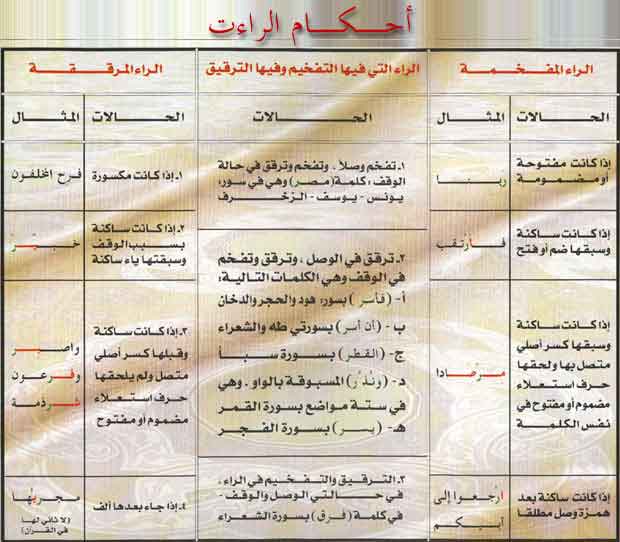 أحكام الراءت
الراء المفخمة
الحالات
المثال
إذا كانت مفتوحة
أو مضمومة
ربنا
إذا كانت ساكنة
وسبقها ضم أو فتح
فارتقب
إذا كانت ساكنة
وسبقها كسر أصلي
متصل بها ولحقها
حرف استعلاء
مضموم أو مفتوح في
نفس الكلمة
مرصادا
إذا كانت ساكنة بعد
همزة وصل مطلقا
ارجعوا إلى
أبيكم
الراء التي فيها التفخيم وفيها الترقيق
الحالات
١. تفخم وصلاً، وتفخم وترقق في حالة
الوقف: كلمة (مصر) وهي في سور:
يونس - يوسف - الزخرف
٢. ترقق في الوصل، وترقق وتفخم
في الوقف وهي الكلمات التالية:
أ- (فأسر) بسور: هود والحجر والدخان
ب - (أن أسر) بسورتي طه والشعراء
ج- (القطر) بسورة سبأ
د- (ونذر) المسبوقة بالواو. وهي
في ستة مواضع بسورة القمر
هـ- (يسر) بسورة الفجر
٣. الترقيق والتفخيم في الراء،
في حالتي الوصل والوقف -
في كلمة (فرق) بسورة الشعراء
الراء المرققة
الحالات
المثال
١. إذا كانت مكسورة
فرح المخلفون
٢. إذا كانت ساكنة
بسبب الوقف
وسبقتها ياء ساكنة
خبير
٣. إذا كانت ساكنة
وقبلها كسر أصلي
متصل ولم يلحقها
حرف استعلاء
مضموم أو مفتوح
واصبر
وفرعون
شرذمة
٤. إذا جاء بعدها ألف
مجريها
(لا ثاني لها
في القرآن)